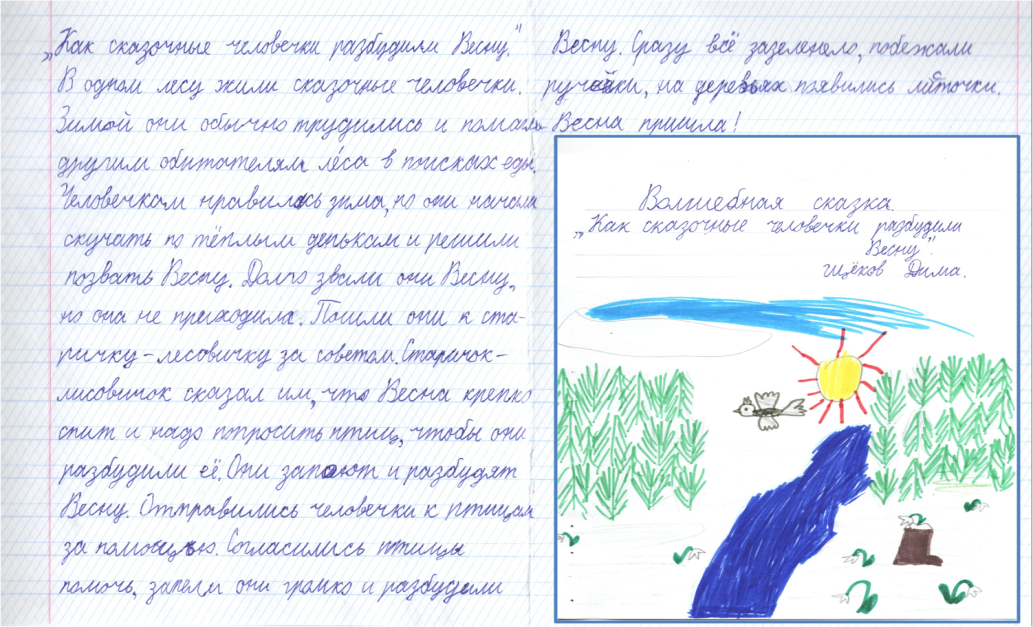 „Как сказочные человечки разбудили Весну."
В одном лесу жили сказочные человечки.
Зимой они обычно трудились и помогали
другим обитателям леса в поисках еды.
Человечкам нравилась зима, но они начали
скучать по тёплым денькам и решили
позвать Весну. Долго звали они Весну,
но она не приходила. Пошли они к ста-
ричку-лесовичку за советом. Старичок-
лисовичок сказал им, что Весна крепко
спит и надо попросить птиц, чтобы они
разбудили её. Они запоют и разбудят
Весну. Отправились человечки к птицам
за помощью. Согласились птицы
помочь, запели они громко и разбудили
Весну. Сразу всё зазеленело, побежали
ручейки, на деревьях появились листочки.
Весна пришла!
Волшебная сказка
„Как сказочные человечки разбудили
Весну".
Щёков Дима.